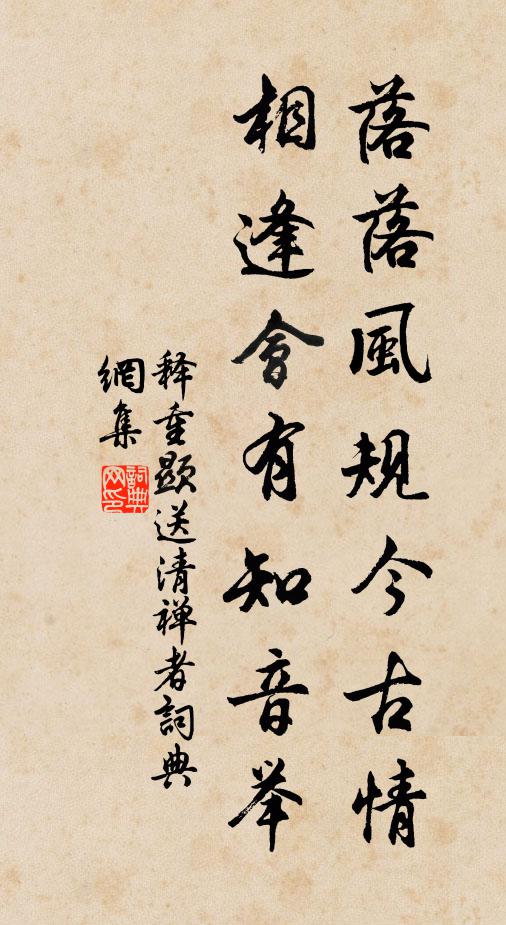 落落風規今古情
相逢會有知音举
释重顯送清禅者詞典
網集
詞典網印